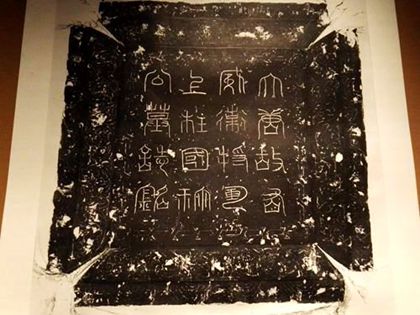 大唐故右
威衛將軍
上柱國祢
公墓誌銘